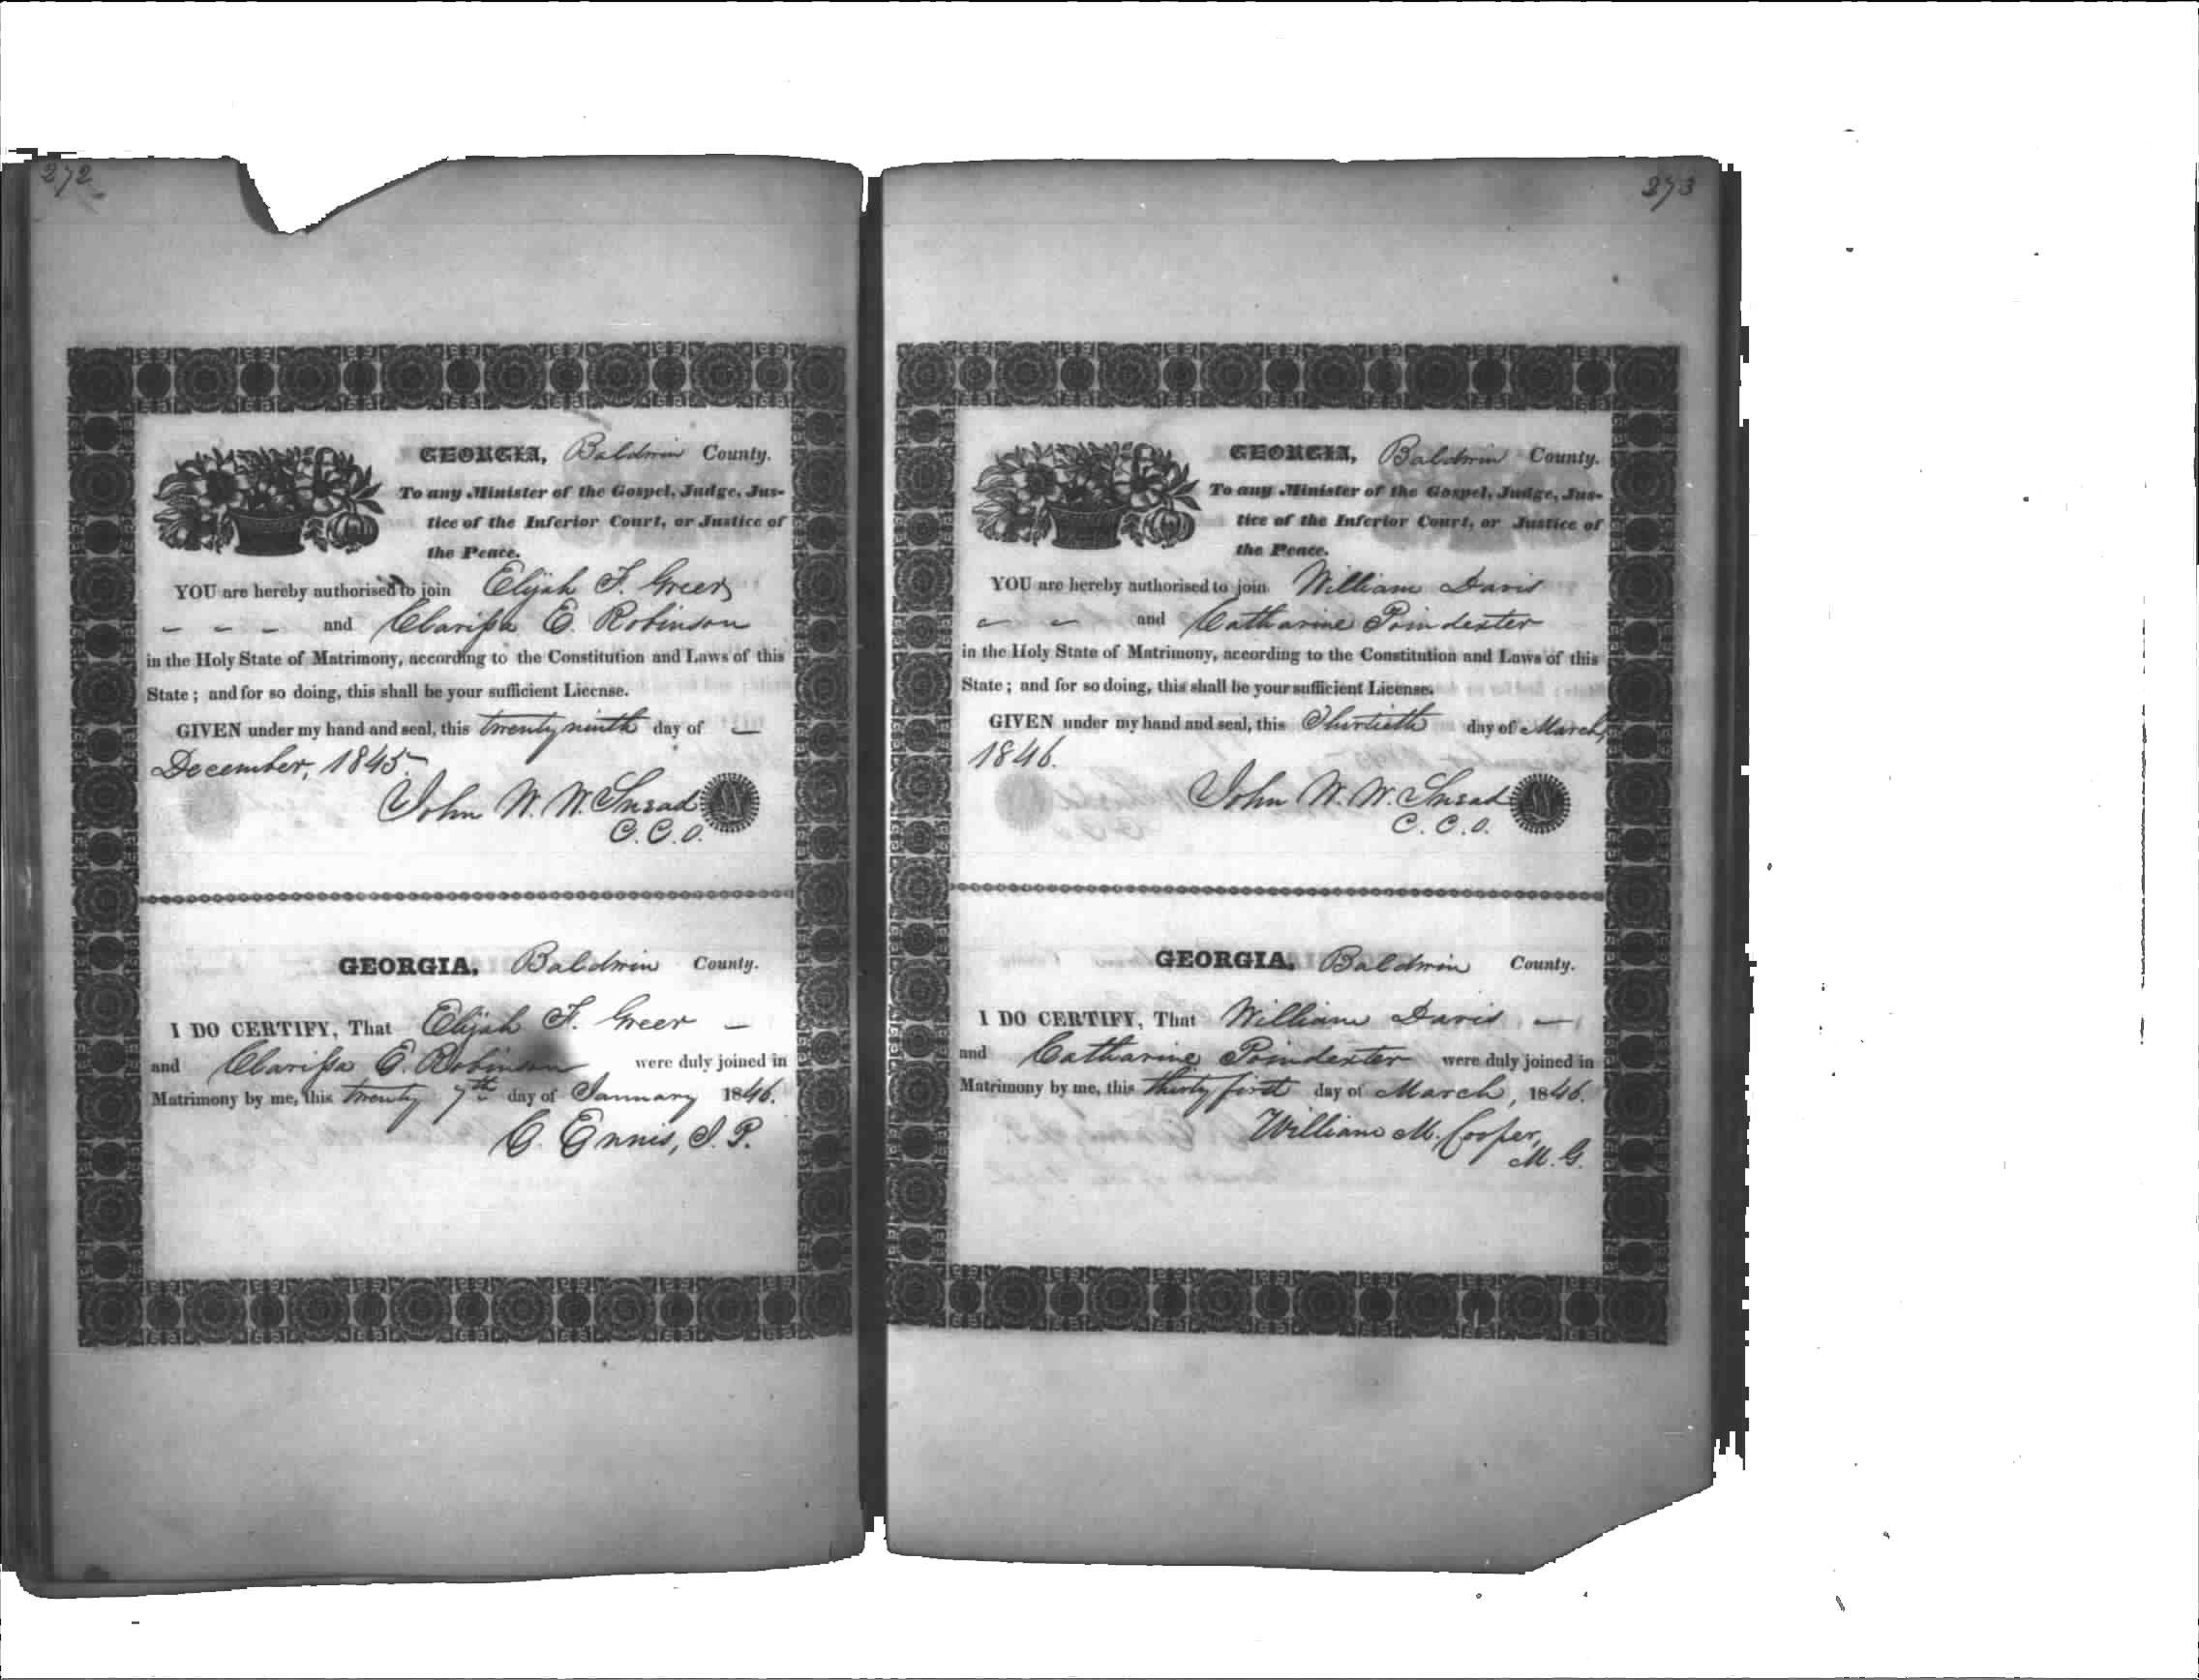 272
GEORGIA, Baldwin County.
To any Minister of the Gospel, Judge, Jus-
tice of the Inferior Court, or Justice of
the Peace.
YOU are hereby authorised to join Elijah F. Greer
- - - and Clarissa E. Robinson
in the Holy State of Matrimony, according to the Constitution and Laws of this
State; and for so doing, this shall be your sufficient License.
GIVEN under my hand and seal, this twenty ninth day of —
December, 1845.
John W. W. Snead
C. C. O.
GEORGIA, Baldwin County.
I DO CERTIFY, That Elijah F. Greer —
and Clarissa E. Robinson were duly joined in
Matrimony by me, this twenty 7th day of January 1846.
C. Ennis, J. P.
273
GEORGIA, Baldwin County.
To any Minister of the Gospel, Judge, Jus-
tice of the Inferior Court, or Justice of
the Peace.
YOU are hereby authorised to join William Davis
- - and Catharine Poindexter
in the Holy State of Matrimony, according to the Constitution and Laws of this
State; and for so doing, this shall be your sufficient License.
GIVEN under my hand and seal, this Thirtieth day of March,
1846.
John W. W. Snead
C. C. O.
GEORGIA, Baldwin County.
I DO CERTIFY, That William Davis —
and Catharine Poindexter were duly joined in
Matrimony by me, this thirty first day of March, 1846.
William M. Cooper,
M. G.